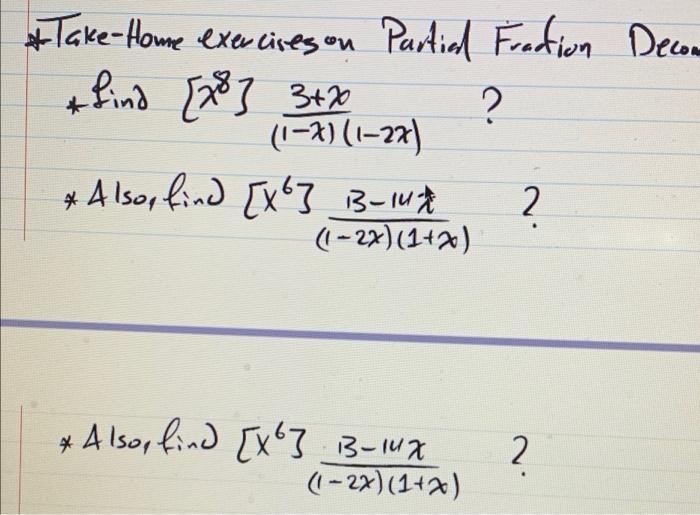 * Take-Home exercises on Partial Fraction Decom
* find [x⁸] 3+x / (1-x)(1-2x) ?
* Also, find [x⁶] 13-14x / (1-2x)(1+x) ?
* Also, find [x⁶] 13-14x / (1-2x)(1+x) ?